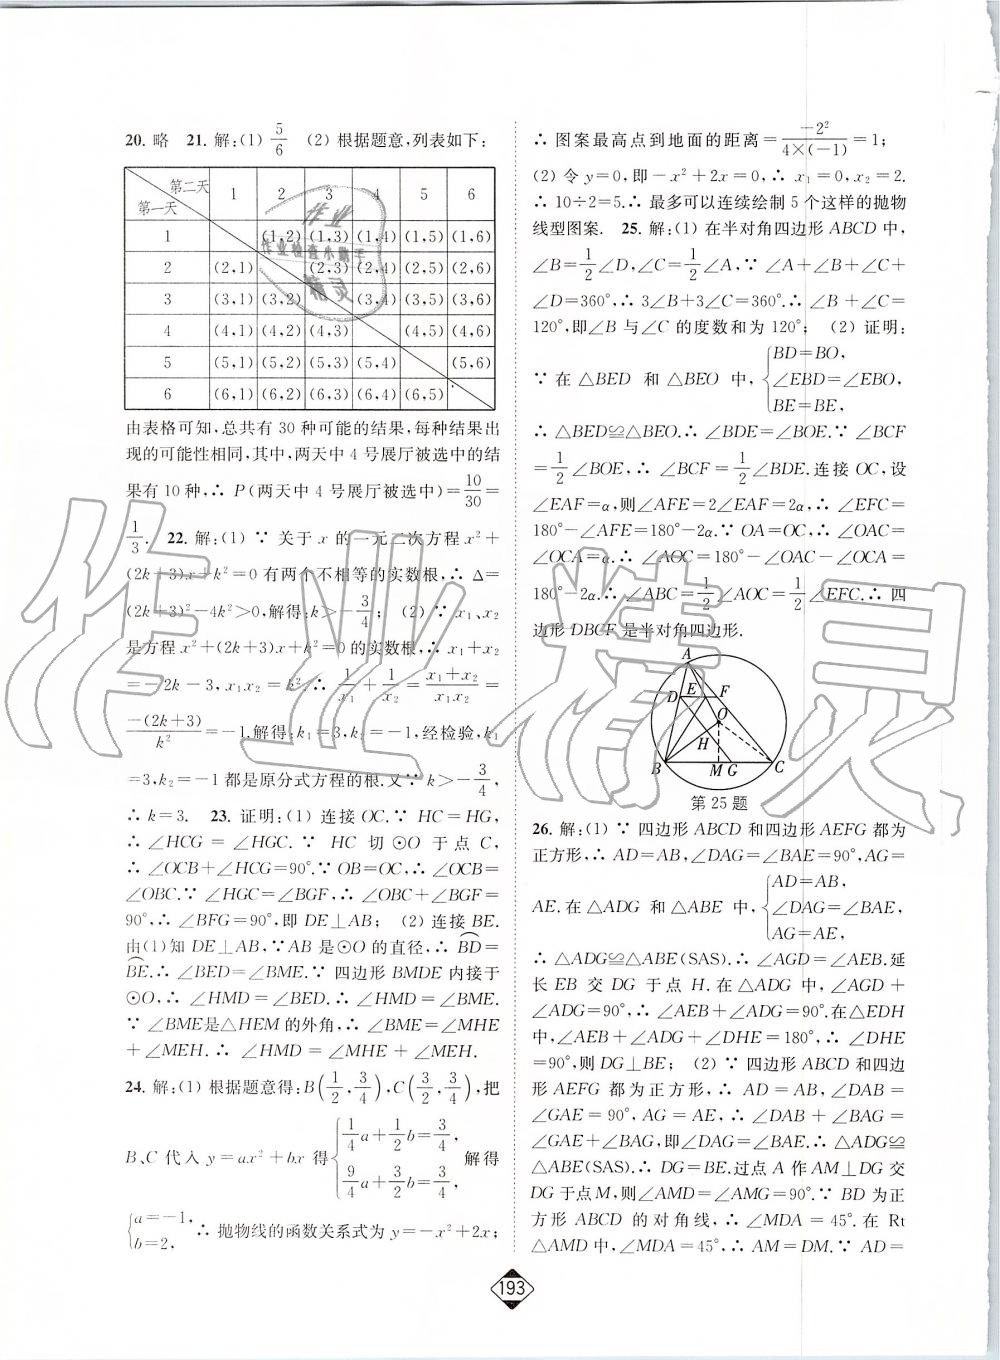 20. 略　21. 解:(1) 5/6　(2) 根据题意,列表如下:
第二天 第一天 1 2 3 4 5 6
1 (1,2) (1,3) (1,4) (1,5) (1,6)
2 (2,1) (2,3) (2,4) (2,5) (2,6)
3 (3,1) (3,2) (3,4) (3,5) (3,6)
4 (4,1) (4,2) (4,3) (4,5) (4,6)
5 (5,1) (5,2) (5,3) (5,4) (5,6)
6 (6,1) (6,2) (6,3) (6,4) (6,5)
由表格可知,总共有 30 种可能的结果,每种结果出
现的可能性相同,其中,两天中 4 号展厅被选中的结
果有 10 种,∴ P(两天中 4 号展厅被选中)=10/30=
1/3.　22. 解:(1) ∵ 关于 x 的一元二次方程 x²+
(2k+3)x+k²=0 有两个不相等的实数根,∴ Δ=
(2k+3)²-4k²>0,解得:k>-3/4; (2) ∵ x₁,x₂
是方程 x²+(2k+3)x+k²=0 的实数根,∴ x₁+x₂
=-2k-3,x₁x₂=k².∴ 1/x₁+1/x₂=(x₁+x₂)/(x₁x₂)=
-(2k+3)/k²=-1.解得:k₁=3,k₂=-1,经检验,k₁
=3,k₂=-1 都是原分式方程的根.又∵ k>-3/4,
∴ k=3.　23. 证明:(1) 连接 OC.∵ HC=HG,
∴ ∠HCG = ∠HGC. ∵ HC 切 ⊙O 于点 C,
∴ ∠OCB+∠HCG=90°.∵ OB=OC,∴ ∠OCB=
∠OBC.∵ ∠HGC=∠BGF,∴ ∠OBC+∠BGF=
90°,∴ ∠BFG=90°,即 DE⊥AB; (2) 连接 BE.
由(1)知 DE⊥AB,∵AB 是⊙O 的直径,∴ ⌒BD=
⌒BE.∴ ∠BED=∠BME.∵ 四边形 BMDE 内接于
⊙O,∴ ∠HMD=∠BED.∴ ∠HMD=∠BME.
∵ ∠BME是△HEM 的外角,∴ ∠BME=∠MHE
+∠MEH.∴ ∠HMD=∠MHE+∠MEH.
24. 解:(1) 根据题意得:B(1/2,3/4),C(3/2,3/4),把
B、C 代入 y=ax²+bx 得{1/4a+1/2b=3/4, 9/4a+3/2b=3/4, 解得
{a=-1, b=2, ∴ 抛物线的函数关系式为 y=-x²+2x;
∴ 图案最高点到地面的距离=-2²/(4×(-1))=1;
(2) 令 y=0,即-x²+2x=0,∴ x₁=0,x₂=2.
∴ 10÷2=5.∴ 最多可以连续绘制 5 个这样的抛物
线型图案.　25. 解:(1) 在半对角四边形 ABCD 中,
∠B=1/2∠D,∠C=1/2∠A,∵ ∠A+∠B+∠C+
∠D=360°,∴ 3∠B+3∠C=360°.∴ ∠B+∠C=
120°,即∠B 与∠C 的度数和为 120°; (2) 证明:
∵ 在 △BED 和 △BEO 中,{BD=BO, ∠EBD=∠EBO, BE=BE,
∴ △BED≌△BEO.∴ ∠BDE=∠BOE.∵ ∠BCF
=1/2∠BOE,∴ ∠BCF=1/2∠BDE.连接 OC,设
∠EAF=α,则∠AFE=2∠EAF=2α.∴ ∠EFC=
180°-∠AFE=180°-2α.∵ OA=OC,∴ ∠OAC=
∠OCA=α.∴ ∠AOC=180°-∠OAC-∠OCA=
180°-2α.∴ ∠ABC=1/2∠AOC=1/2∠EFC.∴ 四
边形 DBCF 是半对角四边形.
A
D E F
O
H
B M G C
第 25 题
26. 解:(1) ∵ 四边形 ABCD 和四边形 AEFG 都为
正方形,∴ AD=AB,∠DAG=∠BAE=90°,AG=
AE.在 △ADG 和 △ABE 中,{AD=AB, ∠DAG=∠BAE, AG=AE,
∴ △ADG≌△ABE(SAS).∴ ∠AGD=∠AEB.延
长 EB 交 DG 于点 H.在△ADG 中,∠AGD+
∠ADG=90°,∴ ∠AEB+∠ADG=90°.在△EDH
中,∠AEB+∠ADG+∠DHE=180°,∴ ∠DHE
=90°,则 DG⊥BE; (2) ∵ 四边形 ABCD 和四边
形 AEFG 都为正方形,∴ AD=AB,∠DAB=
∠GAE=90°,AG=AE,∴ ∠DAB+∠BAG=
∠GAE+∠BAG,即∠DAG=∠BAE.∴ △ADG≌
△ABE(SAS).∴ DG=BE.过点 A 作 AM⊥DG 交
DG 于点 M,则∠AMD=∠AMG=90°.∵ BD 为正
方形 ABCD 的对角线,∴ ∠MDA=45°.在 Rt
△AMD 中,∠MDA=45°,∴ AM=DM.∵ AD=
193
作业
作业检查小助手
精灵
作业精灵